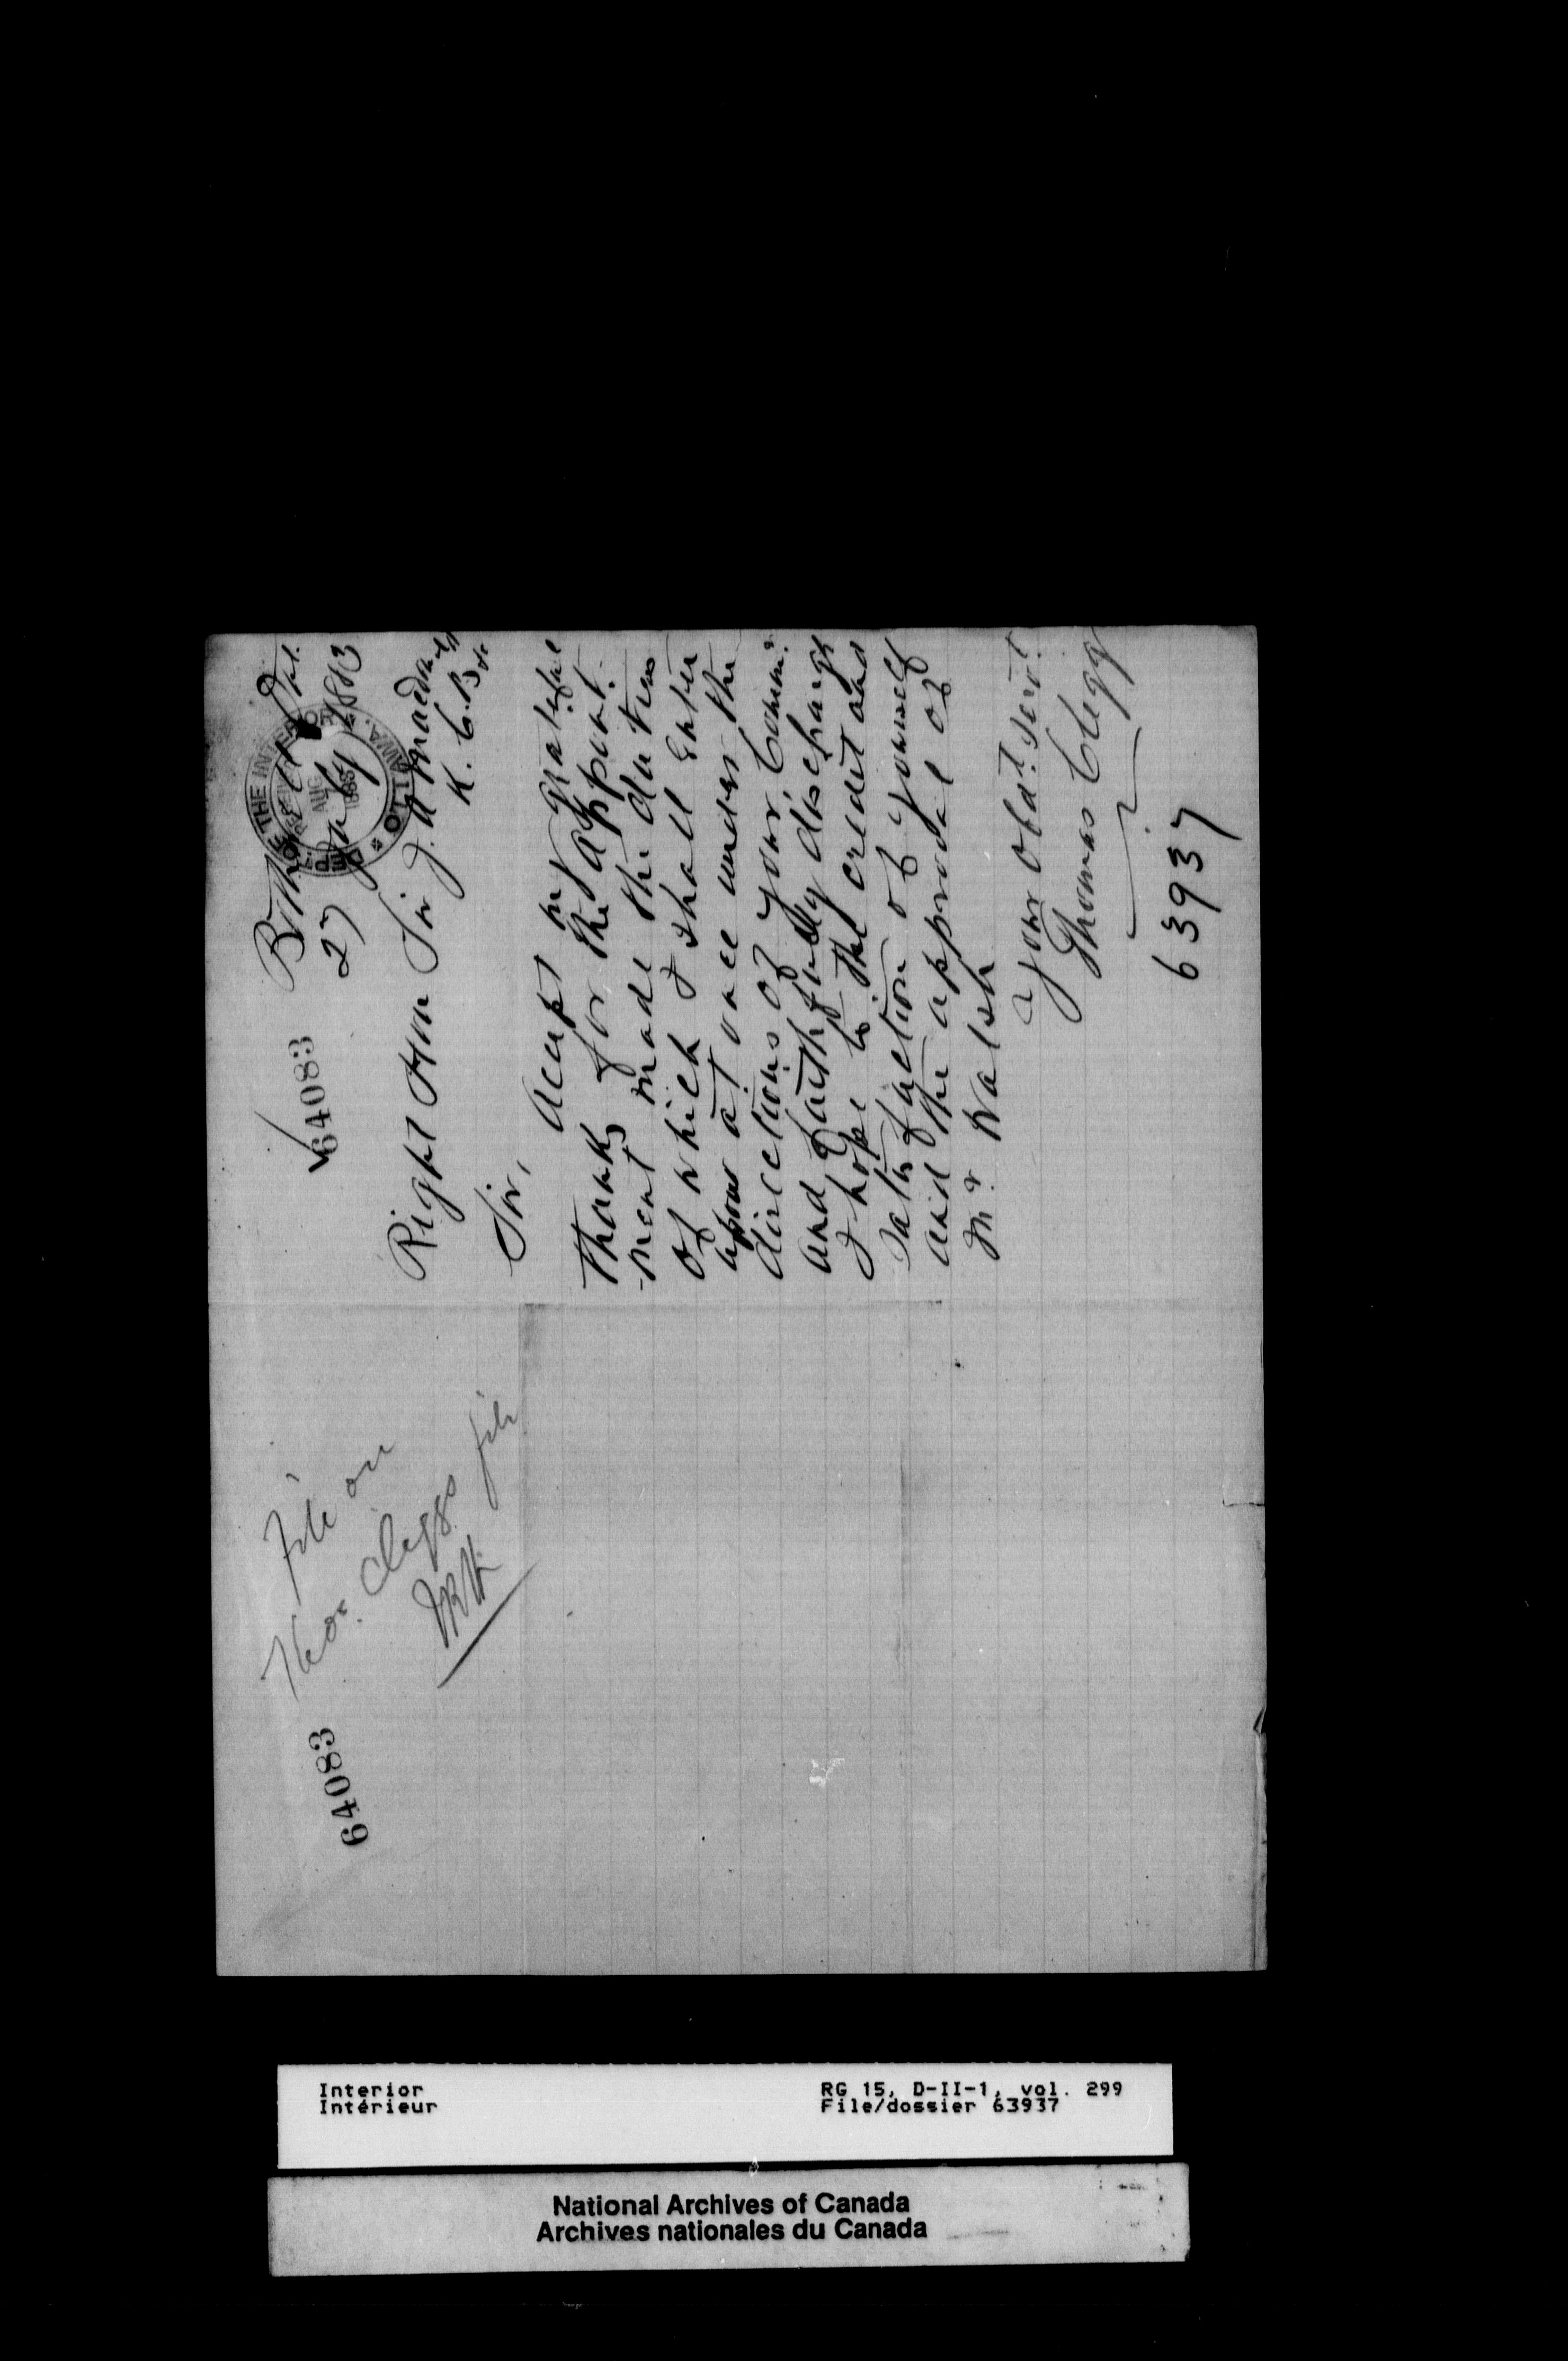 64083
File on
Thos. Cleggs file
64083
Bothwell Ont.
27 July 1883
DEPT. OF THE INTERIOR
AUG
1883
OTTAWA.
Right Hon Sir J. A Macdonald
K. C. B &c
Sir,
Accept my grateful
thanks for the appoint-
-ment made the duties
of which I shall enter
upon at once under the
directions of your Comm.r
and faithfully discharge
I hope to the credit and
satisfaction of yourself
and the approval of
Mr. Walsh
Your obdt. servt.
Thomas Clegg
63937
Interior
Intérieur
RG 15, D-II-1, vol. 299
File/dossier 63937
National Archives of Canada
Archives nationales du Canada